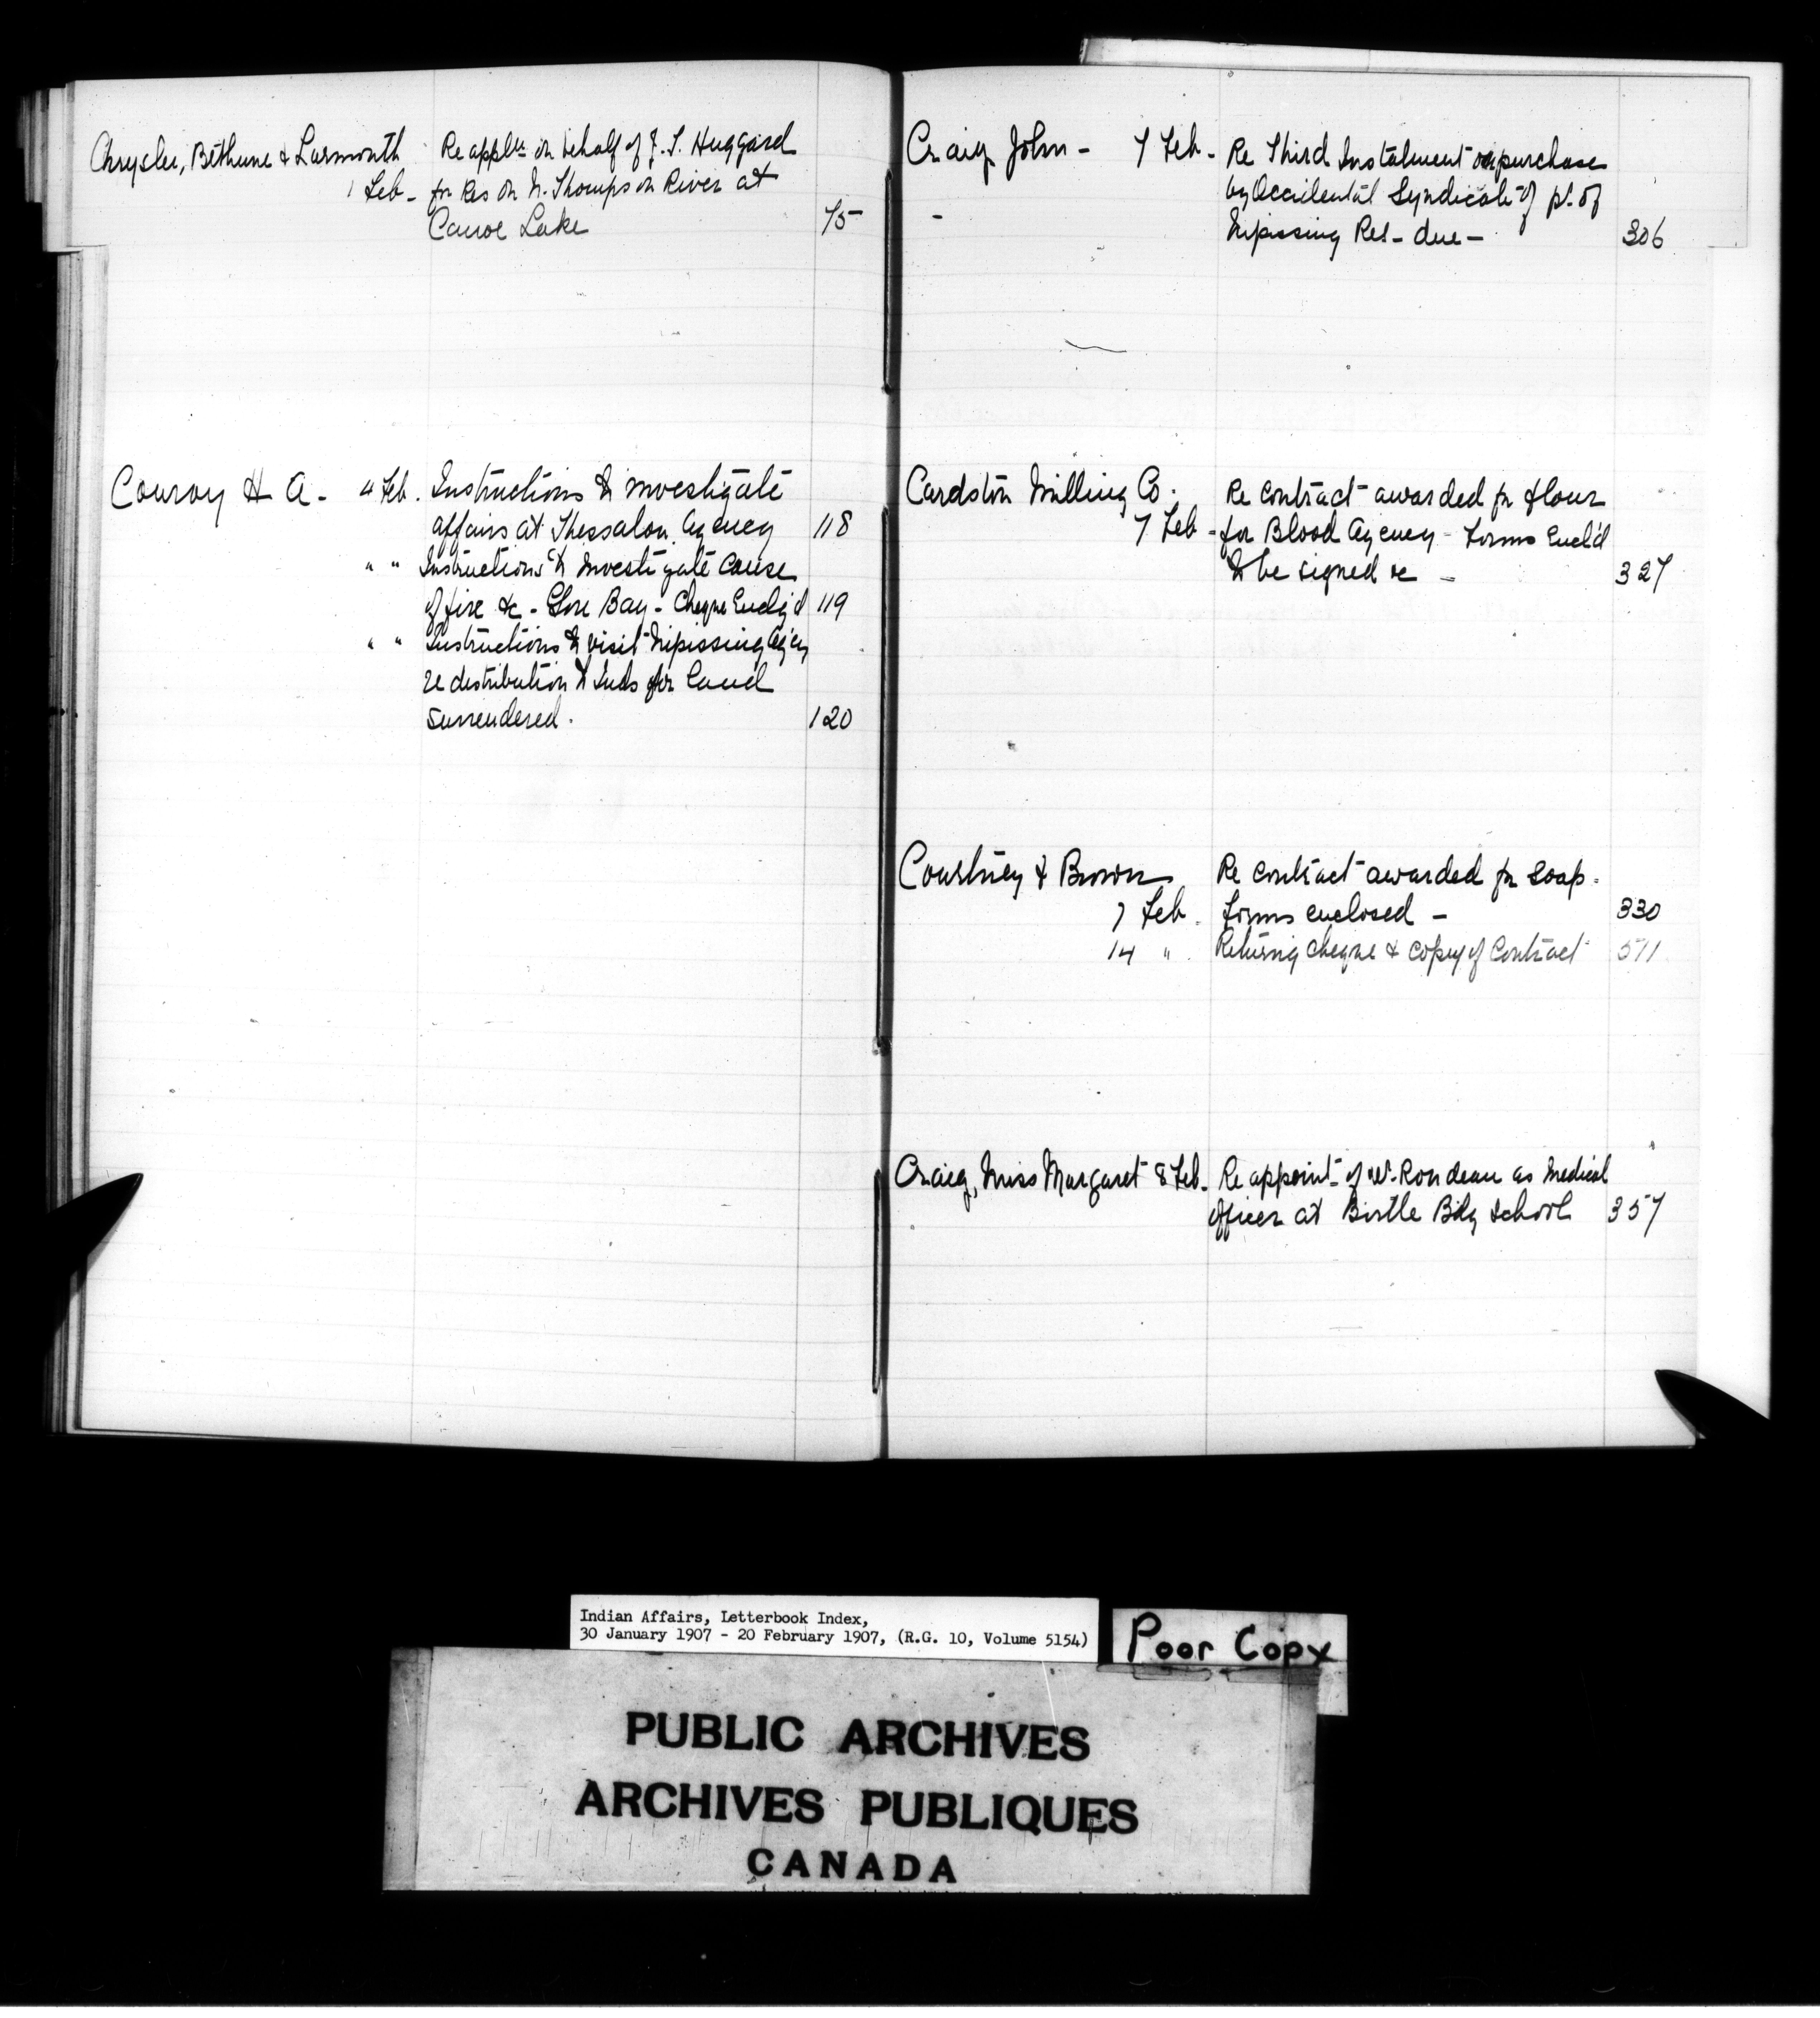 Chrysler, Bethune & Larmonth Re applⁿ on behalf of J. T. Huggard
1 Feb - for Res on N. Thompson River at
Canoe Lake 75
Conroy H A - 4 Feb. Instructions to investigate
affairs at Thessalon Agency 118
" " Instructions to investigate cause
of fire &c - Gore Bay - Cheque Encl'd 119
" " Instructions to visit Nipissing Agcy
re distribution to Inds for land
surrendered. 120
Craig John - 7 Feb - Re Third Instalment on purchase
by Occidental Syndicate of pt. of
Nipissing Res - due - 306
Cardston Milling Co. Re contract awarded for flour
7 Feb - for Blood Agency - Forms Encl'd
to be signed re - 327
Courtney & Brown Re contract awarded for soap.
7 Feb. Forms enclosed - 330
14 " Returning cheque & copy of Contract 571
Craig, Miss Margaret 8 Feb. Re appoint of Rondeau as medical
officer at Birtle Bdg School 357
Indian Affairs, Letterbook Index,
30 January 1907 - 20 February 1907, (R.G. 10, Volume 5154)
Poor Copy
PUBLIC ARCHIVES
ARCHIVES PUBLIQUES
CANADA